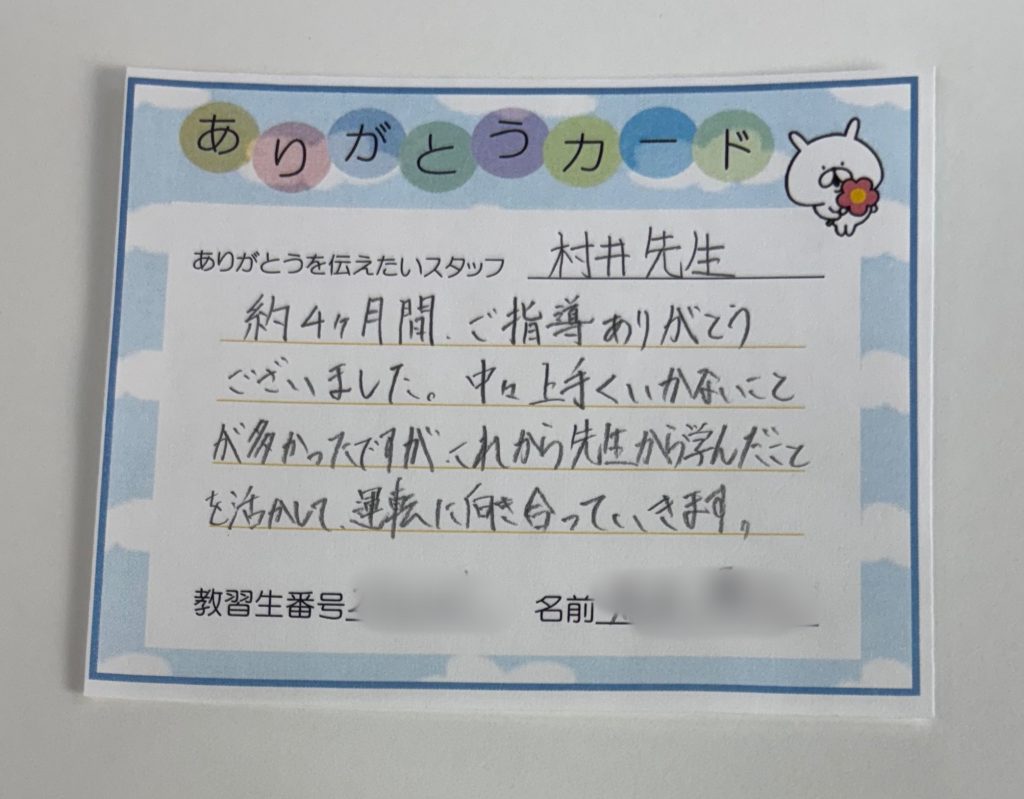 ありがとうカード
ありがとうを伝えたいスタッフ 村井先生
約4ヶ月間、ご指導ありがとう
ございました。中々上手くいかないこと
が多かったですが、これから先生から学んだこと
を活かして、運転に向き合っていきます。
教習生番号
名前